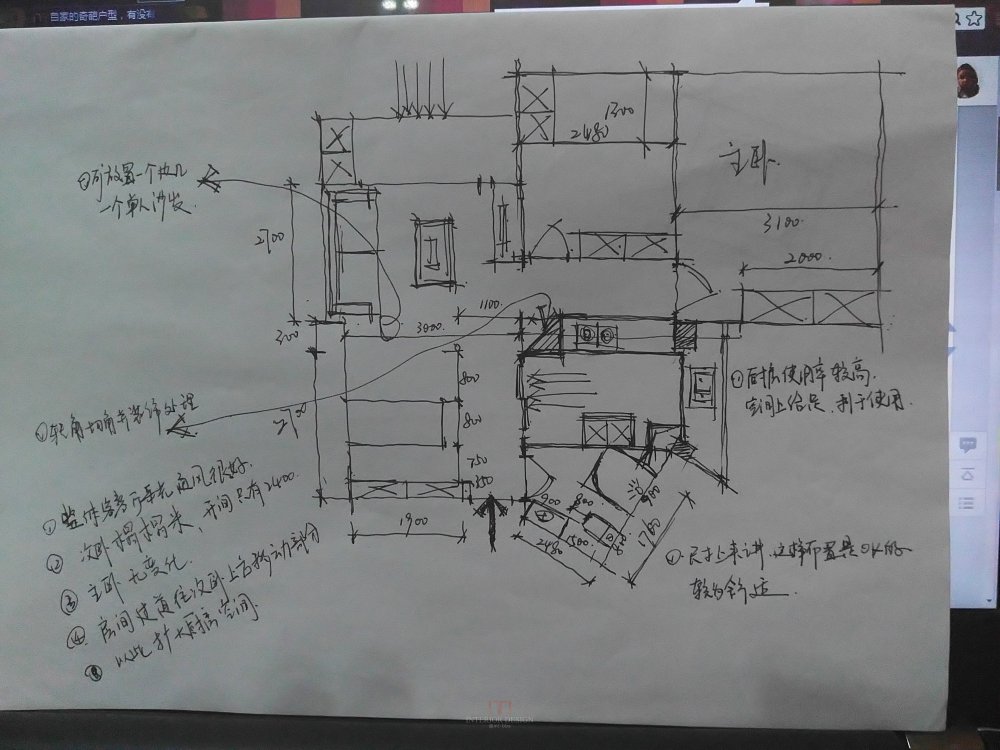 自家的奇葩户型，有没有
1300
2480
主卧
3100
2000
可放置一个
一个单人沙发
2700
300
3000
1100
800
800
2700
1900
转角切角并装饰处理
厨房使用率较高
空间上给足，利于使用
900
800
900
2480
1500
1700
尺寸上来讲，这样布置是OK的
较为舒适
① 整体 采光通风很好
② 次卧榻榻米，开间只有2400
③ 主卧无变化
④ 房间过道往次卧上占挪动部分
以此扩大厨房空间
INTERIOR DESIGN